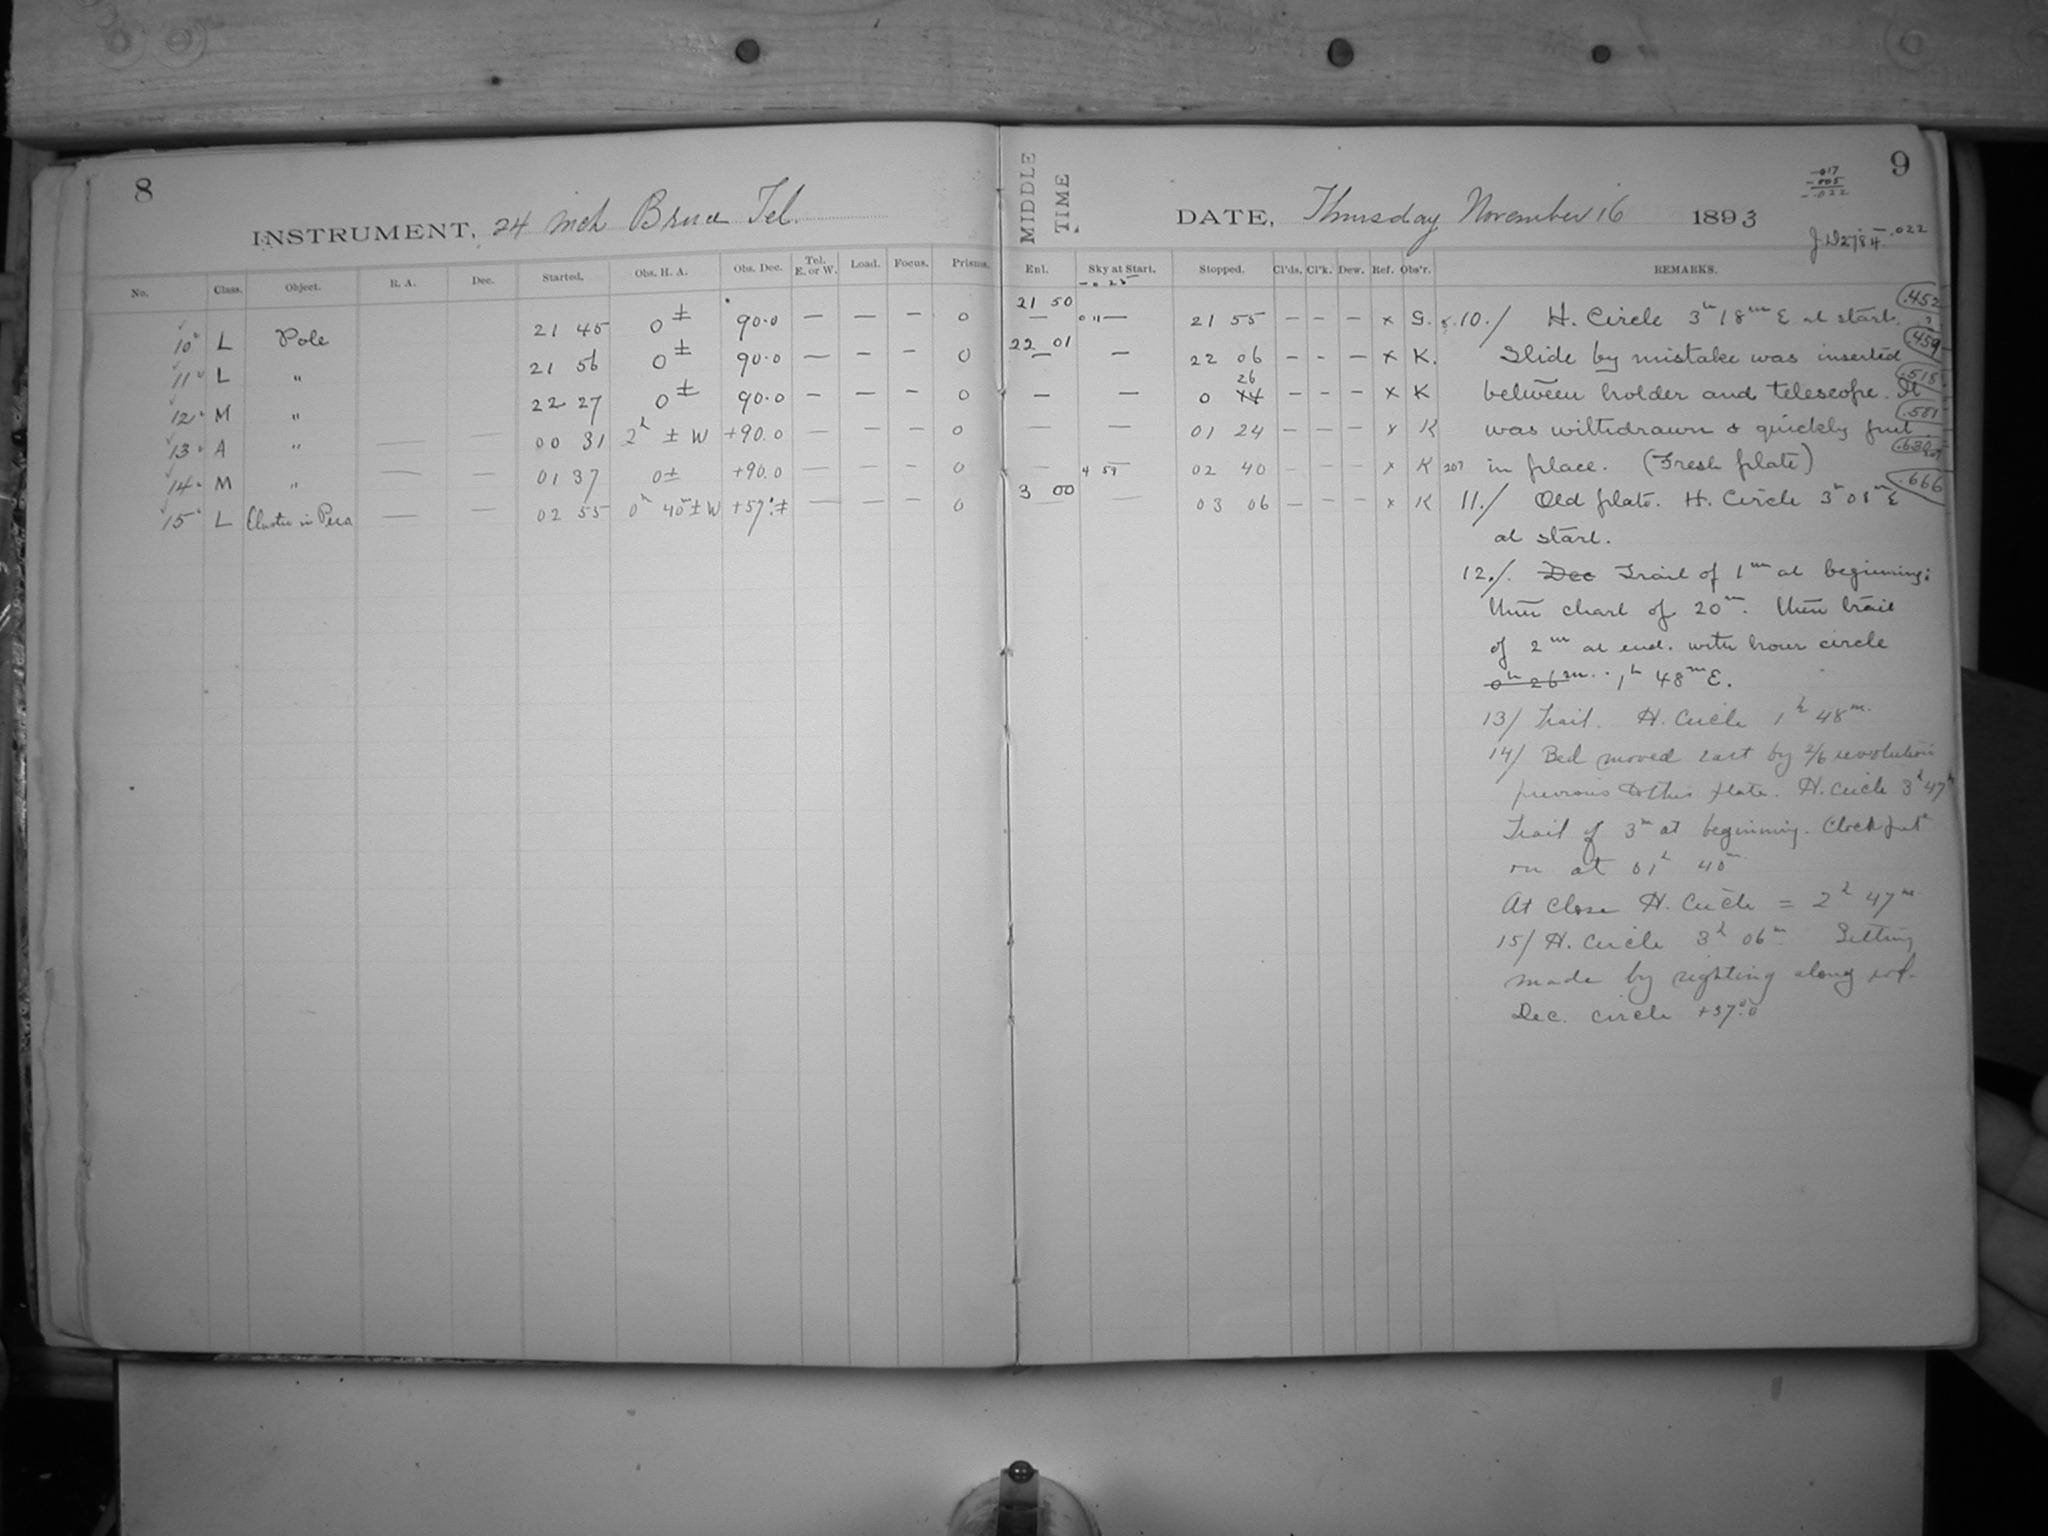 8
INSTRUMENT, 24 inch Bruce Tel.
No. Class. Object. R. A. Dec. Started. Obs. H. A. Obs. Dec. Tel. E. or W. Load. Focus. Prisms.
10 L Pole 21 45 0 ± 90.0 — — — 0
11 L " 21 56 0 ± 90.0 — — — 0
12 M " 22 27 0 ± 90.0 — — — 0
13 A " — — 00 31 2h ± W +90.0 — — — 0
14 M " — — 01 37 0 ± +90.0 — — — 0
15 L Cluster in Pers — — 02 55 0h 40m ± W +57.± — — — 0
MIDDLE TIME
9
DATE, Thursday November 16 1893
-.017
-.005
-.022
J D 2784 -.022
Enl. Sky at Start. Stopped. Cl'ds. Cl'k. Dew. Ref. Obs'r. REMARKS.
21 50 — — 21 55 — — — x G.
22 01 — — 22 06 — — — x K.
— — 0 26 — — — x K
— — 01 24 — — — x K
— 4 59 02 40 — — — x K 207
3 00 — — 03 06 — — — x K
.452
.459
.518
.581
.630
.666
10./ H. Circle 3h 18m E at start.
Slide by mistake was inserted
between holder and telescope. It
was withdrawn & quickly put
in place. (Fresh plate)
11./ Old plate. H. Circle 3h 08m E
at start.
12./. Dec Trail of 1m at beginning:
then chart of 20m. then trail
of 2m at end. with hour circle
0h 26m. 1h 48m E.
13/ Trail. H. Circle 1h 48m.
14/ Bed moved east by 2/6 revolution
previous to this plate. H. Circle 3h 47m
Trail of 3m at beginning. Clock put
on at 01h 40m
At close H. Circle = 2h 47m
15/ H. Circle 3h 06m Setting
made by sighting along
Dec. circle +57.0